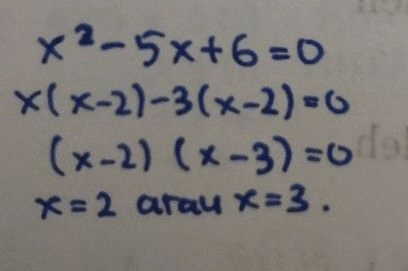 x² - 5x + 6 = 0
x(x-2) - 3(x-2) = 0
(x-2) (x-3) = 0
x = 2 atau x = 3.